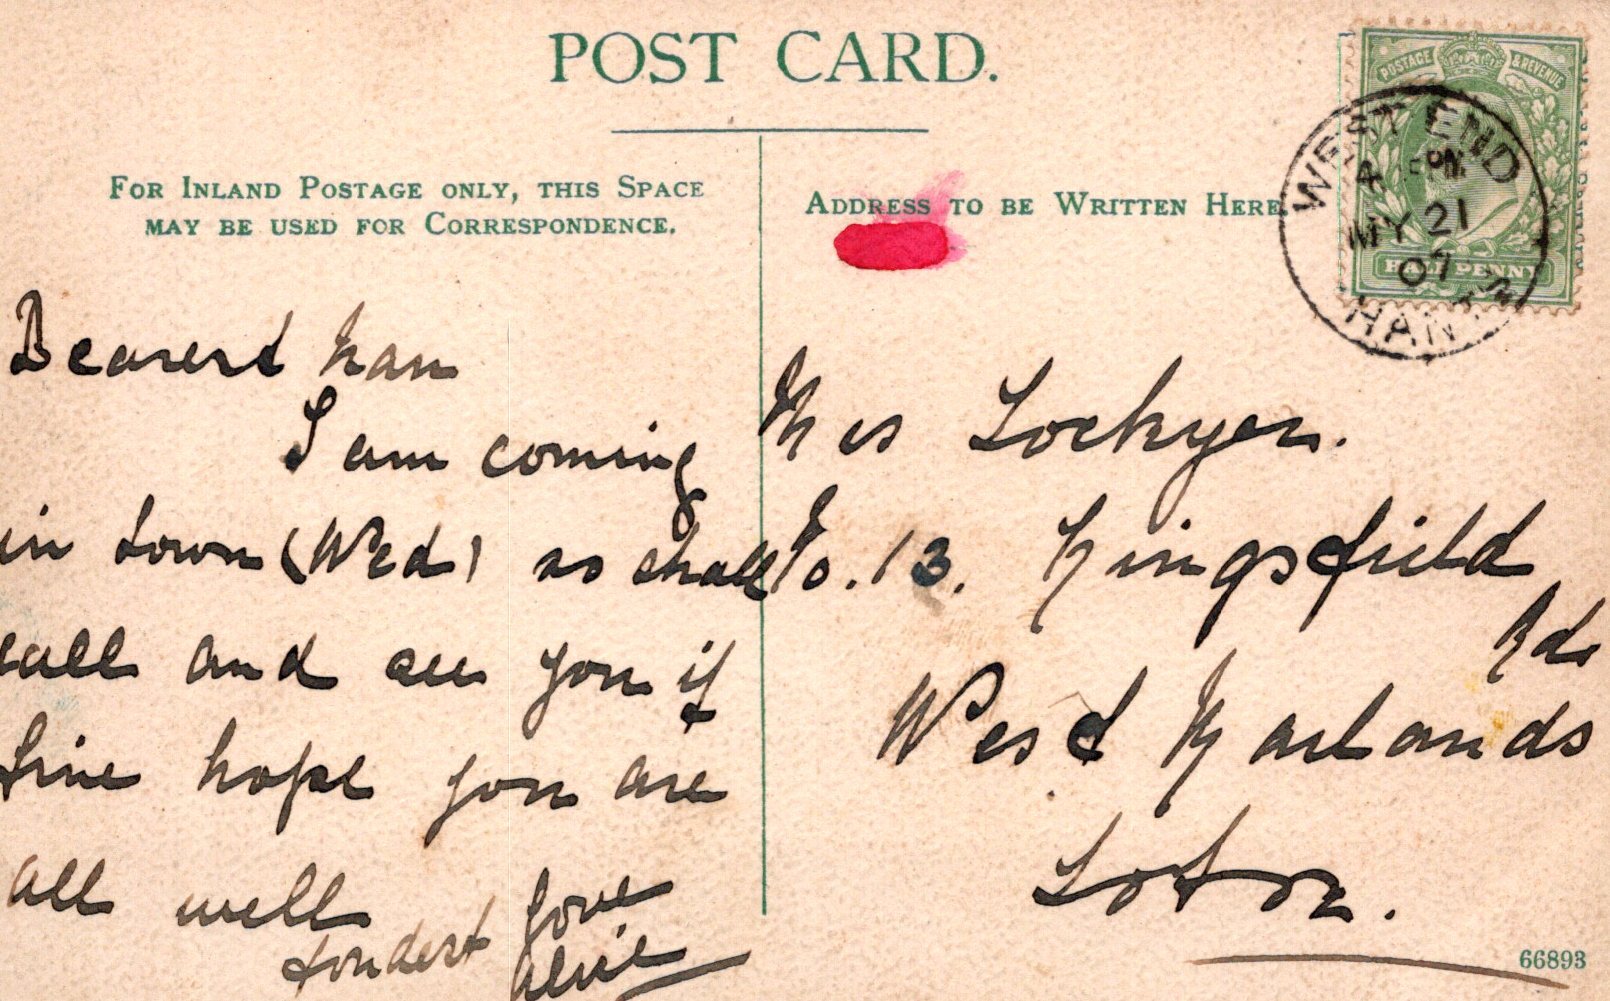 POST CARD.
FOR INLAND POSTAGE ONLY, THIS SPACE
MAY BE USED FOR CORRESPONDENCE.
ADDRESS TO BE WRITTEN HERE
POSTAGE & REVENUE
HALF PENNY
WEST END
PM
MY 21
07
HANTS
Dearest Nan
I am coming
in town (Wed) so shall
call and see you if
fine hope you are
all well
fondest love
Alice
Mrs Lockyer.
No. 13. Kingsfield
Rd
West Marlands
Soton.
66893